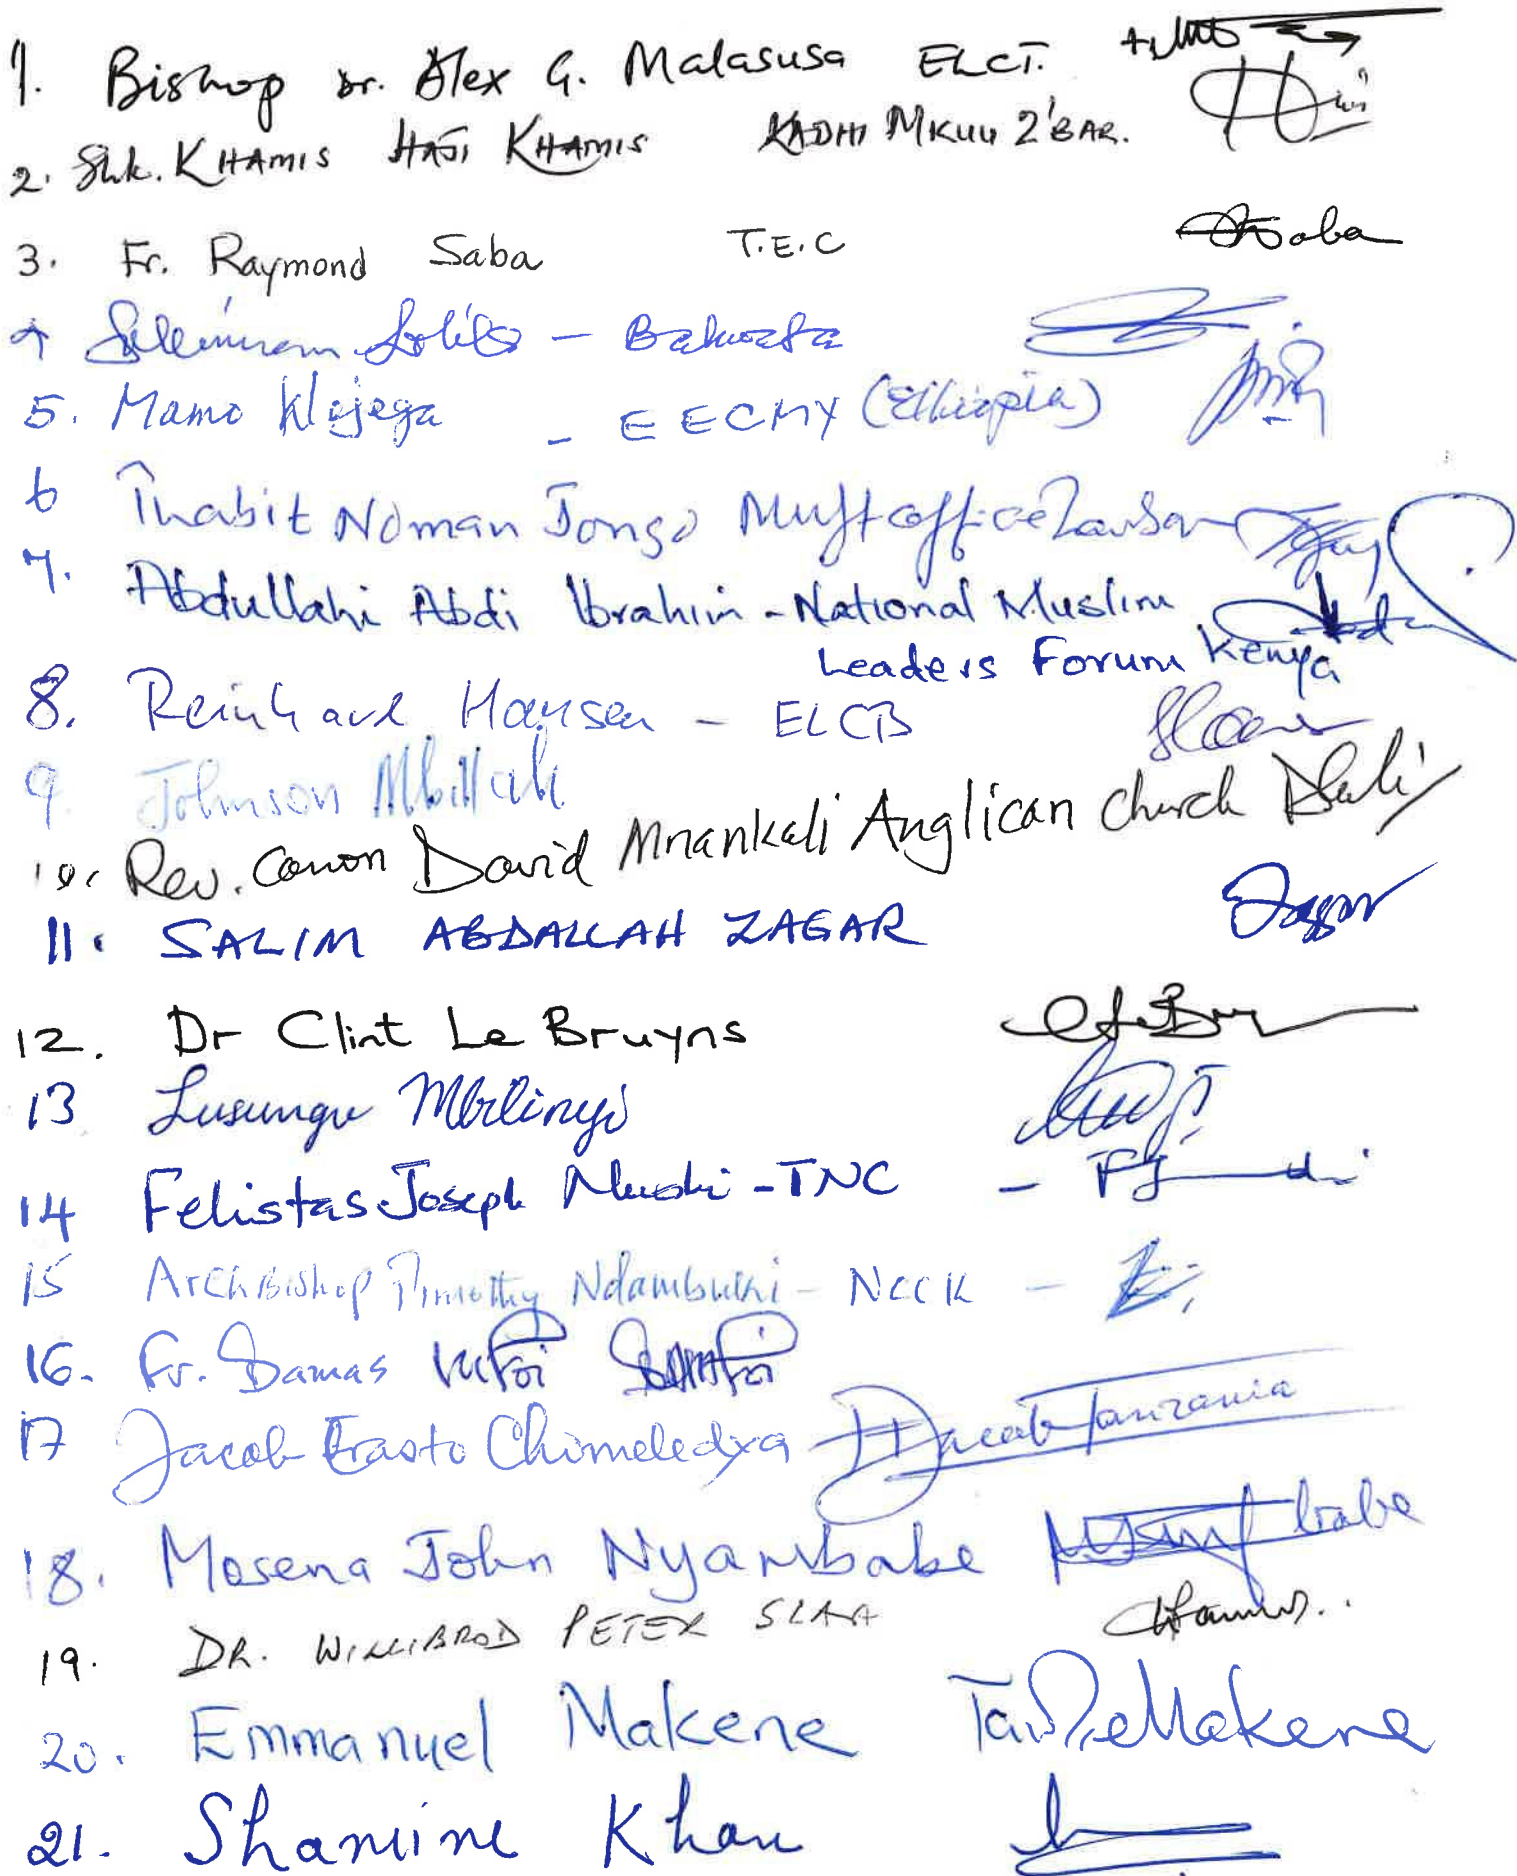 1. Bishop Dr. Alex G. Malasusa ELCT.
2. Shk. KHAMIS HAJI KHAMIS KADHI MKUU Z'BAR.
3. Fr. Raymond Saba T.E.C Saba
4 Suleiman Lolila - Bakwata
5. Mamo - EECMY (Ethiopia)
6 Thabit Noman Jongo Mufti office Zanzibar
7. Abdullahi Abdi Ibrahim - National Muslim
Leaders Forum Kenya
8. Reinhard Hansen - ELCB
9. Johnson Mbillah
10. Rev. Canon David Mnankali Anglican Church
11. SALIM ABDALLAH ZAGAR
12. Dr Clint Le Bruyns
13 Lusungu Mbilinyi
14 Felistas Joseph - TNC -
15 Archbishop Timothy Ndambuki - NCCK -
16. Fr. Damas Mfoi
17 Jacob Erasto Chimeledya Jacob Tanzania
18. Mosena John Nyambabe
19. DR. WILLIBROD PETER SLAA
20. Emmanuel Makene Makene
21. Shamine Khan